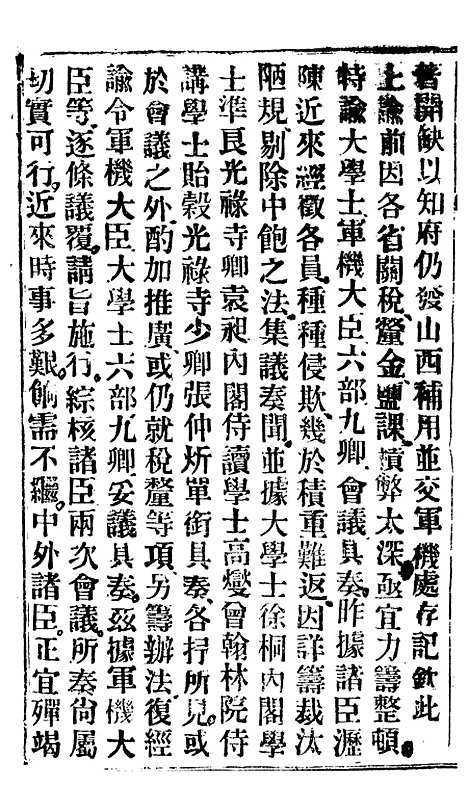 著開缺以知府仍發山西補用並交軍機處存記欽此
上諭前因各省關稅釐金鹽課積弊太深亟宜力籌整頓
特諭大學士軍機大臣六部九卿會議具奏昨據諸臣瀝
陳近來經徵各員種種侵欺幾於積重難返因詳籌裁汰
陋規剔除中飽之法集議奏聞並據大學士徐桐內閣學
士準良光祿寺卿袁昶內閣侍讀學士高燮曾翰林院侍
講學士貽穀光祿寺少卿張仲炘單銜具奏各抒所見或
於會議之外酌加推廣或仍就稅釐等項另籌辦法復經
諭令軍機大臣大學士六部九卿妥議具奏茲據軍機大
臣等逐條議覆請旨施行綜核諸臣兩次會議所奏尙屬
切實可行近來時事多艱餉需不繼中外諸臣正宜殫竭